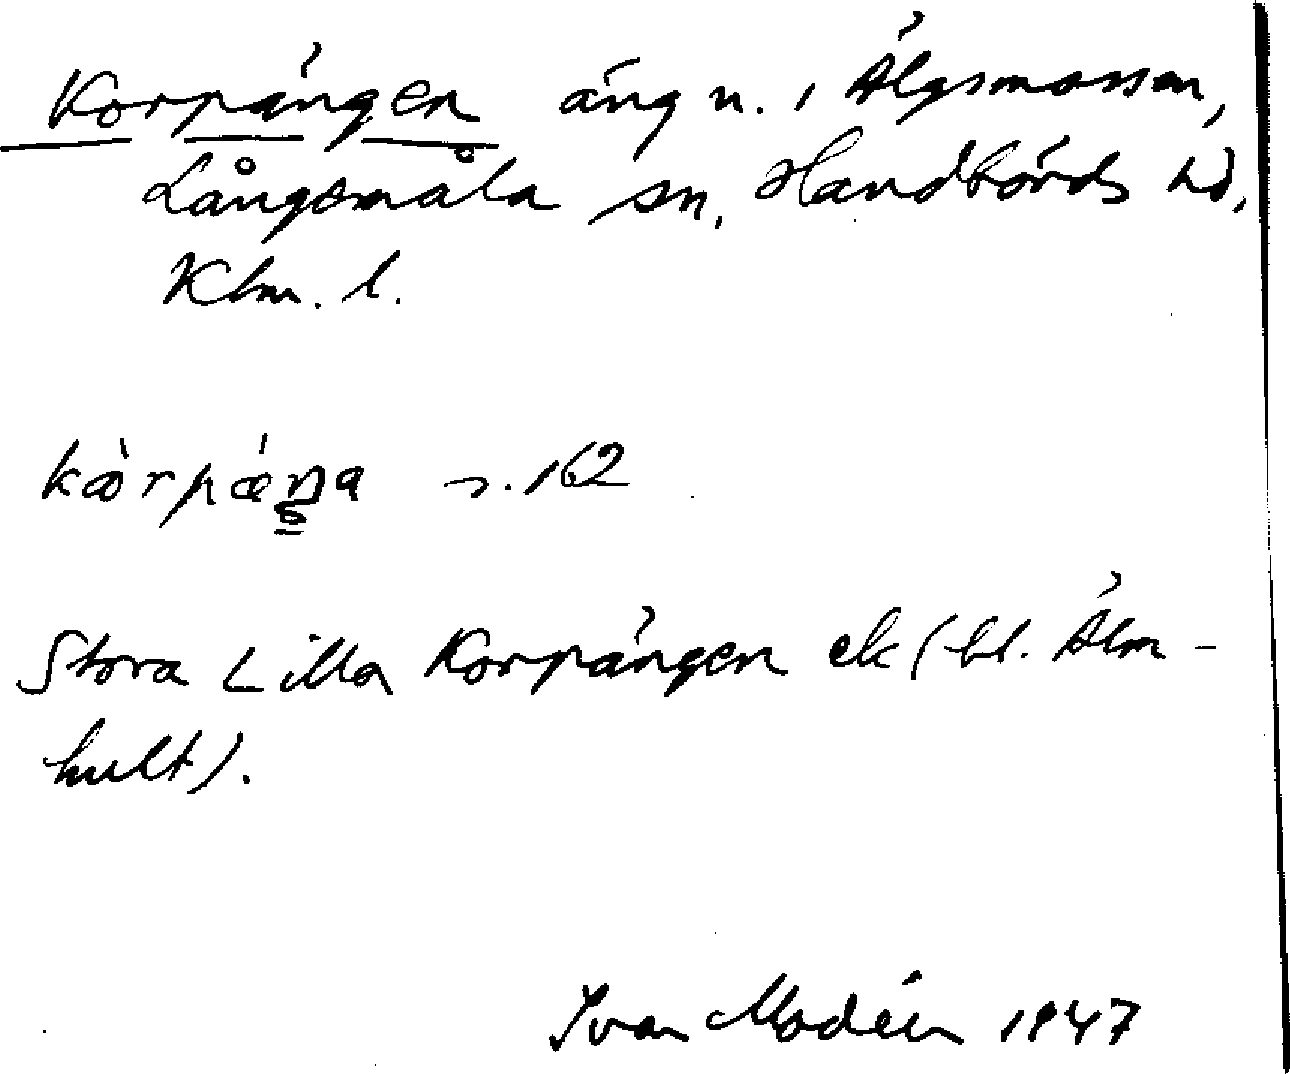 Korpängen äng n. i Älgsmossen,
Långemåla sn, Handbörds hd,
Klm. l.
kòrpǽŋa n. 162
Stora Lilla Korpängen ek (bl. Älm-
hult).
Ivar Modéer 1947